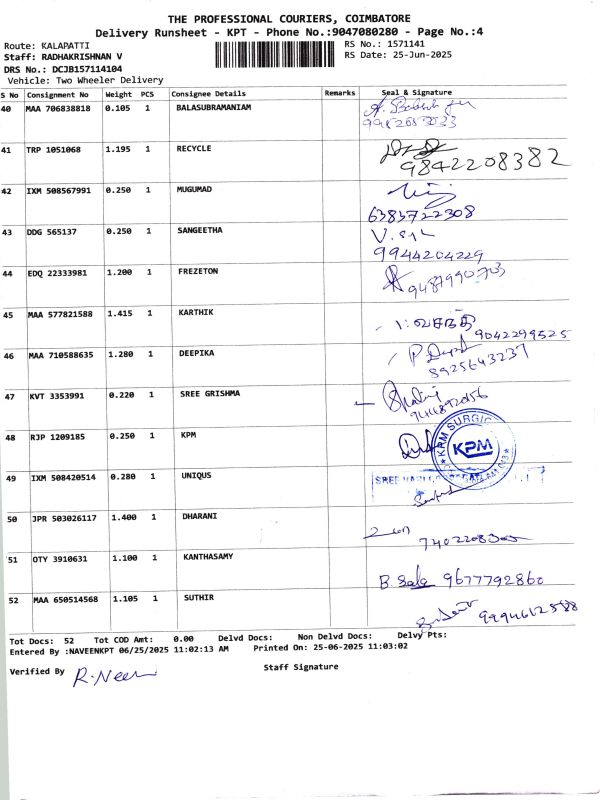 THE PROFESSIONAL COURIERS, COIMBATORE
Delivery Runsheet - KPT - Phone No.:9047080280 - Page No.:4
Route: KALAPATTI RS No.: 1571141
Staff: RADHAKRISHNAN V RS Date: 25-Jun-2025
DRS No.: DCJB157114104
Vehicle: Two Wheeler Delivery
S No Consignment No Weight PCS Consignee Details Remarks Seal & Signature
40 MAA 706838818 0.105 1 BALASUBRAMANIAM
41 TRP 1051068 1.195 1 RECYCLE
9842208382
42 IXM 508567991 0.250 1 MUGUMAD
6383722308
43 DDG 565137 0.250 1 SANGEETHA
9944204229
44 EDQ 22333981 1.200 1 FREZETON
9487990703
45 MAA 577821588 1.415 1 KARTHIK
வசந்தி
9042299525
46 MAA 710588635 1.280 1 DEEPIKA
8925643237
47 KVT 3353991 0.220 1 SREE GRISHMA
48 RJP 1209185 0.250 1 KPM
KPM SURGIC
KPM
49 IXM 508420514 0.280 1 UNIQUS
SREE
50 JPR 503026117 1.400 1 DHARANI
51 OTY 3910631 1.100 1 KANTHASAMY
9677792860
52 MAA 650514568 1.105 1 SUTHIR
Tot Docs: 52 Tot COD Amt: 0.00 Delvd Docs: Non Delvd Docs: Delvy Pts:
Entered By :NAVEENKPT 06/25/2025 11:02:13 AM Printed On: 25-06-2025 11:03:02
Verified By R.Neen Staff Signature